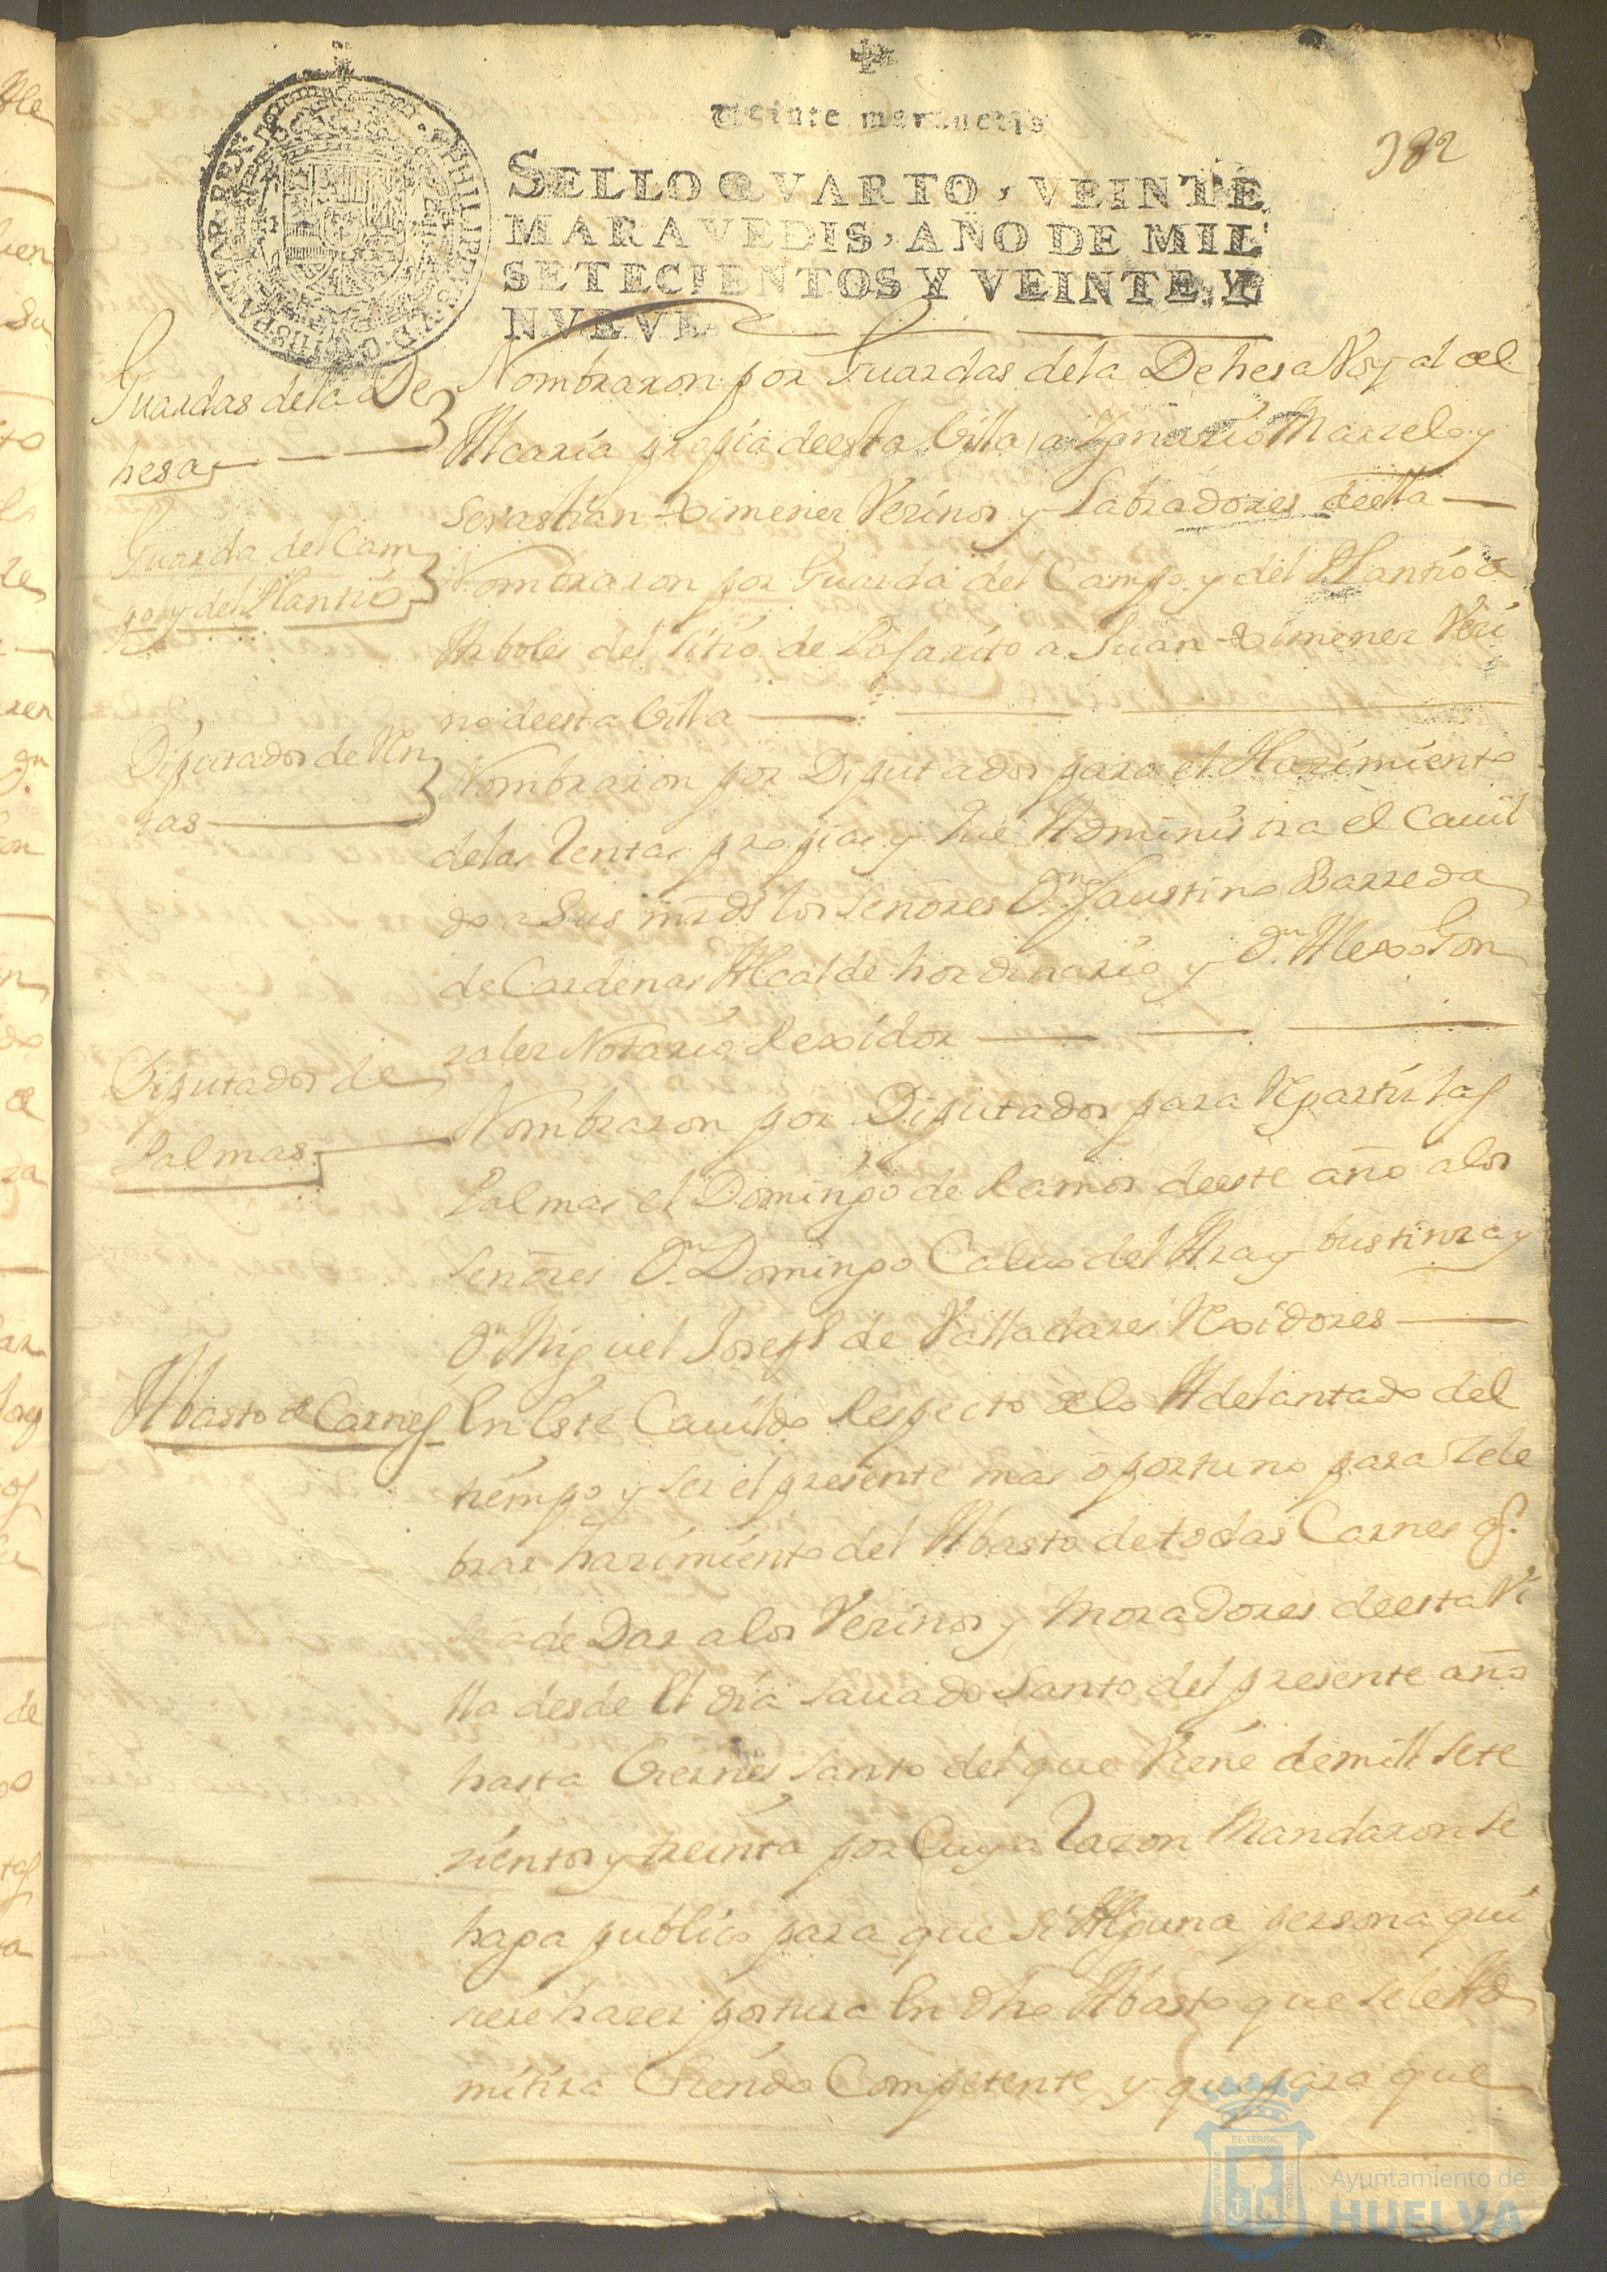 Veinte maravedis
382
SELLO QVARTO, VEINTE
MARAVEDIS, AÑO DE MIL
SETECIENTOS Y VEINTE, Y
NVEVE
Guardas dela De
hesa
Nombraron por Guardas dela Dehesa Noyal del
Alcaria propia deesta Villa, a Ygnacio Marzelo y
Sevastian Ximenez Vezinos y Labradores deella
Guarda del Cam
po y del Plantio
Nombraron por Guarda del Campo y del Plantio de
Arboles del sitio de a Juan Ximenez Vezi
no deesta Villa
Diputados de Ren
tas
Nombraron por Diputados para el Hazimiento
delas Rentas propias y que Administra el Cavil
do a Sus mrds los Señores Dn. Faustino Barreda
de Cardenas Alcalde hordinario y Dn. Alexo Gon
zalez Notario Rexidor
Diputados de
Palmas
Nombraron por Diputados para Repartir las
Palmas el Domingo de Ramos deeste año alos
Señores Dn. Domingo Calvo del Aza y bustinza y
Dn. Miguel Joseph de Valladares Rexidores
Abasto de Carnes
En Este Cavildo Respecto delo Adelantado del
tiempo y ser el presente mas oportuno para Zele
brar hazimiento del Abasto detodas Carnes q.
se a de Dar alos Vezinos y Moradores deesta Vi
lla desde El dia Savado Santo del presente año
hasta Viernes Santo del que Viene de mill sete
zientos y treinta por Cuya Razon Mandaron se
haga publico para que si Alguna persona qui
siere hazer postura En dho Abasto que se le Ad
mitira Siendo Competente, y que para que
Ayuntamiento de
HUELVA